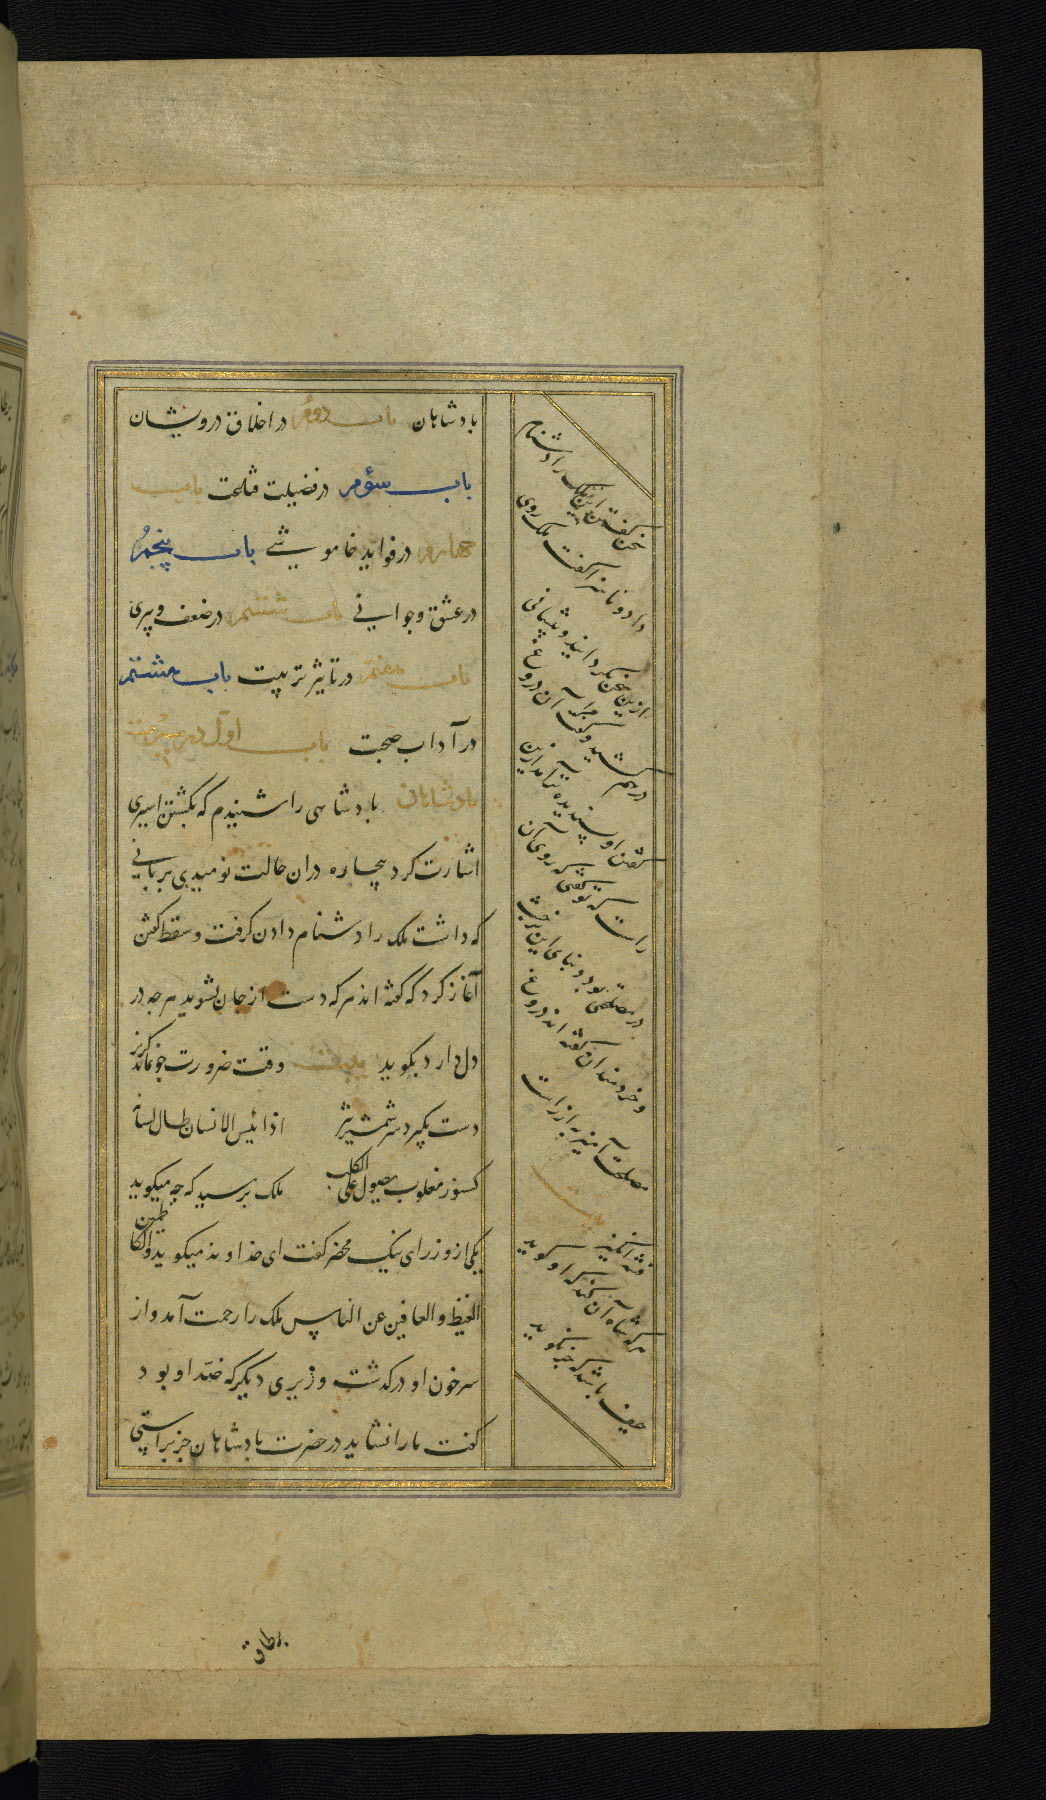 پادشاهان باب دوم در اخلاق درویشان
باب سؤم در فضیلت قناعت باب
چهارم در فواید خاموشی باب پنجم
در عشق و جوانی باب ششم در ضعف و پیری
باب هفتم در تاثیر تربیت باب هشتم
در آداب صحبت باب اول در سیرت
پادشاهان پادشاهی را شنیدم که بکشتن اسیری
اشارت کرد بیچاره دران حالت نومیدی بزبانی
که داشت ملک را دشنام دادن گرفت و سقط گفتن
آغاز کرد که گفته اند هر که دست از جان بشوید هر چه در
دل دارد بگوید بیت وقت ضرورت چو نماند گریز
دست بگیرد سر شمشیر تیز اذا یئس الانسان طال لسانه
کسنور مغلوب یصول علی الکلب ملک پرسید که چه میگوید
یکی از وزرای نیک محضر گفت ای خداوند میگوید والکاظمین
الغیظ والعافین عن الناس ملک را رحمت آمد و از
سر خون او درگذشت وزیری دیگر که ضد او بود
گفت ما را نشاید در حضرت پادشاهان جز براستی
سخن گفتن این ملک را دشنام
داد و ناسزا گفت ملک روی
ازین سخن بگردانید و پیشانی
درهم کشید و گفت مرا آن دروغ
گفتن او پسندیده تر آمد ازین
راست که تو گفتی که روی آن
در مصلحتی بود و بنای این بر خبث
و خردمندان گفته اند دروغ
مصلحت آمیز به از راست
فتنه انگیز
بیت
هر که شاه آن کند که او گوید
حیف باشد که جز نکو گوید
بر طاق